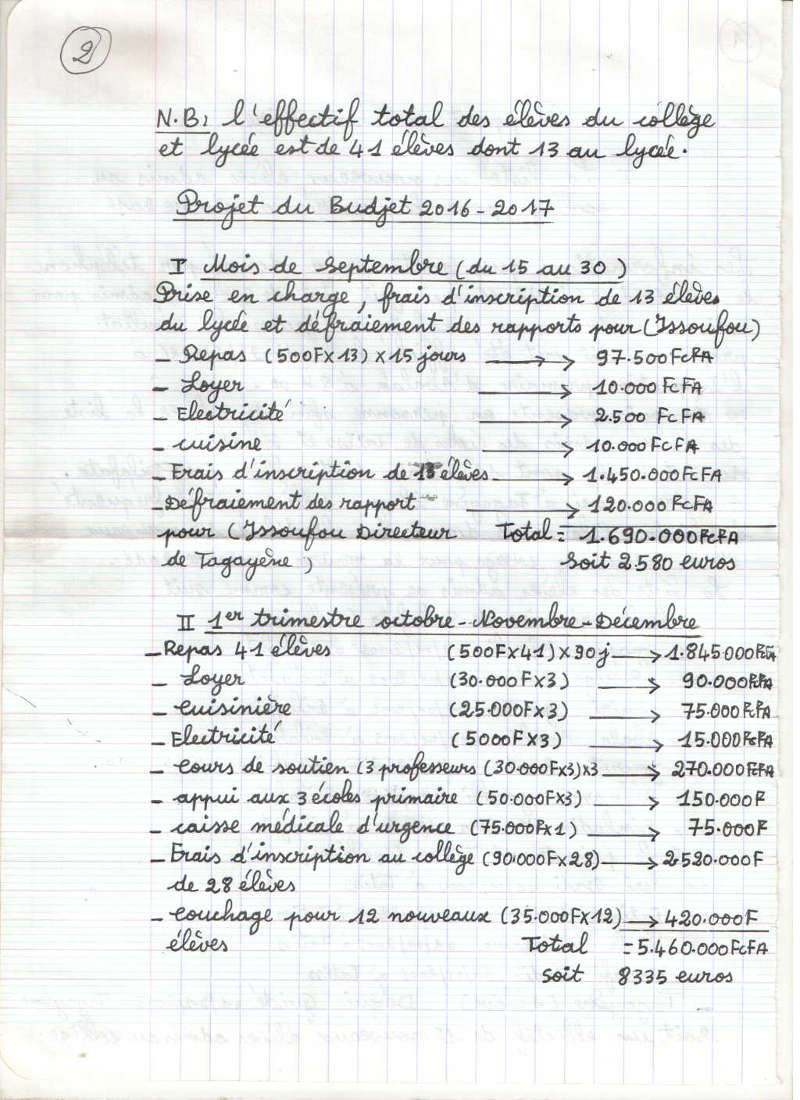 2
N.B: l'effectif total des élèves du collège
et lycée est de 41 élèves dont 13 au lycée.
Projet du Budjet 2016-2017
I Mois de Septembre (du 15 au 30)
Prise en charge, frais d'inscription de 13 élèves
du lycée et défraiement des rapports pour (Issoufou)
- Repas (500F x 13) x 15 jours → 97.500 FcFA
- Loyer → 10.000 FcFA
- Electricité → 2.500 FcFA
- cuisine → 10.000 FcFA
- Frais d'inscription de 13 élèves → 1.450.000 FcFA
- Défraiement des rapport → 120.000 FcFA
pour (Issoufou Directeur Total = 1.690.000 FcFA
de Tagayène) soit 2580 euros
II 1er trimestre octobre-Novembre-Décembre
- Repas 41 élèves (500F x 41) x 90j → 1.845.000 FcFA
- Loyer (30.000F x 3) → 90.000 FcFA
- Cuisinière (25.000F x 3) → 75.000 FcFA
- Electricité (5000F x 3) → 15.000 FcFA
- Cours de soutien (3 professeurs (30.000F x 3) x 3 → 270.000 FcFA
- appui aux 3 écoles primaire (50.000F x 3) → 150.000F
- caisse médicale d'urgence (75.000F x 1) → 75.000F
- Frais d'inscription au collège (90.000F x 28) → 2520.000F
de 28 élèves
- couchage pour 12 nouveaux (35.000F x 12) → 420.000F
élèves Total = 5.460.000 FcFA
soit 8335 euros